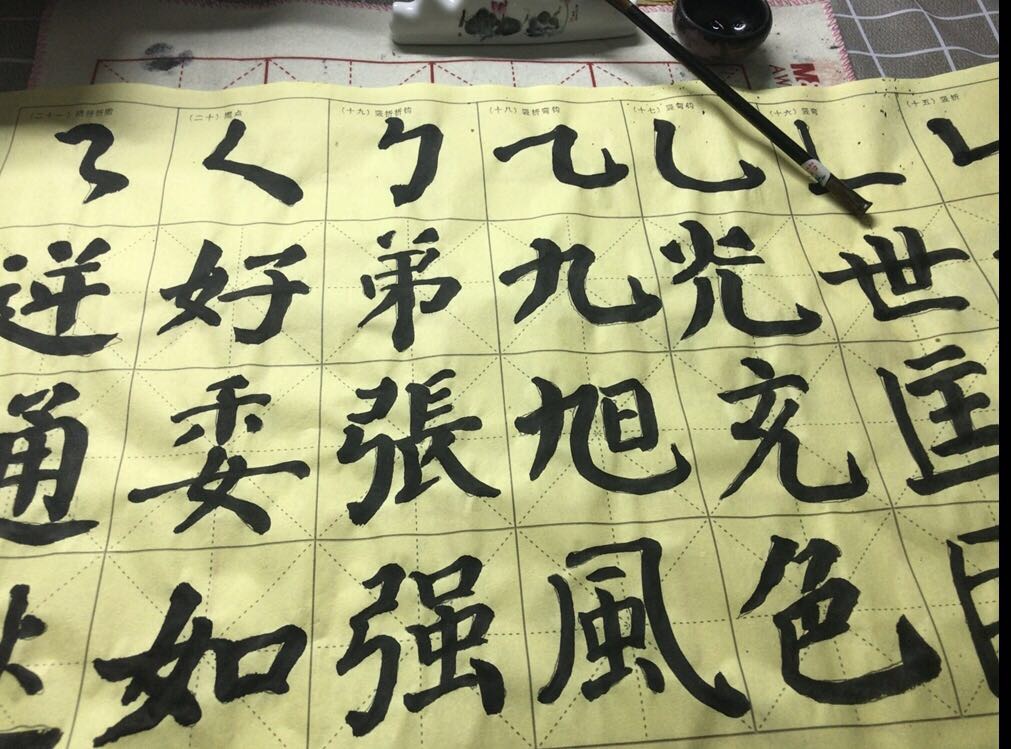 (十五)竖折
(十六)竖弯
㇄
世
匡
(十七)竖弯钩
乚
光
充
色
(十八)竖折弯钩
㇈
九
旭
風
(十九)竖折折钩
㇉
弟
張
强
(二十)撇点
㇛
好
委
如
(二十一)
通